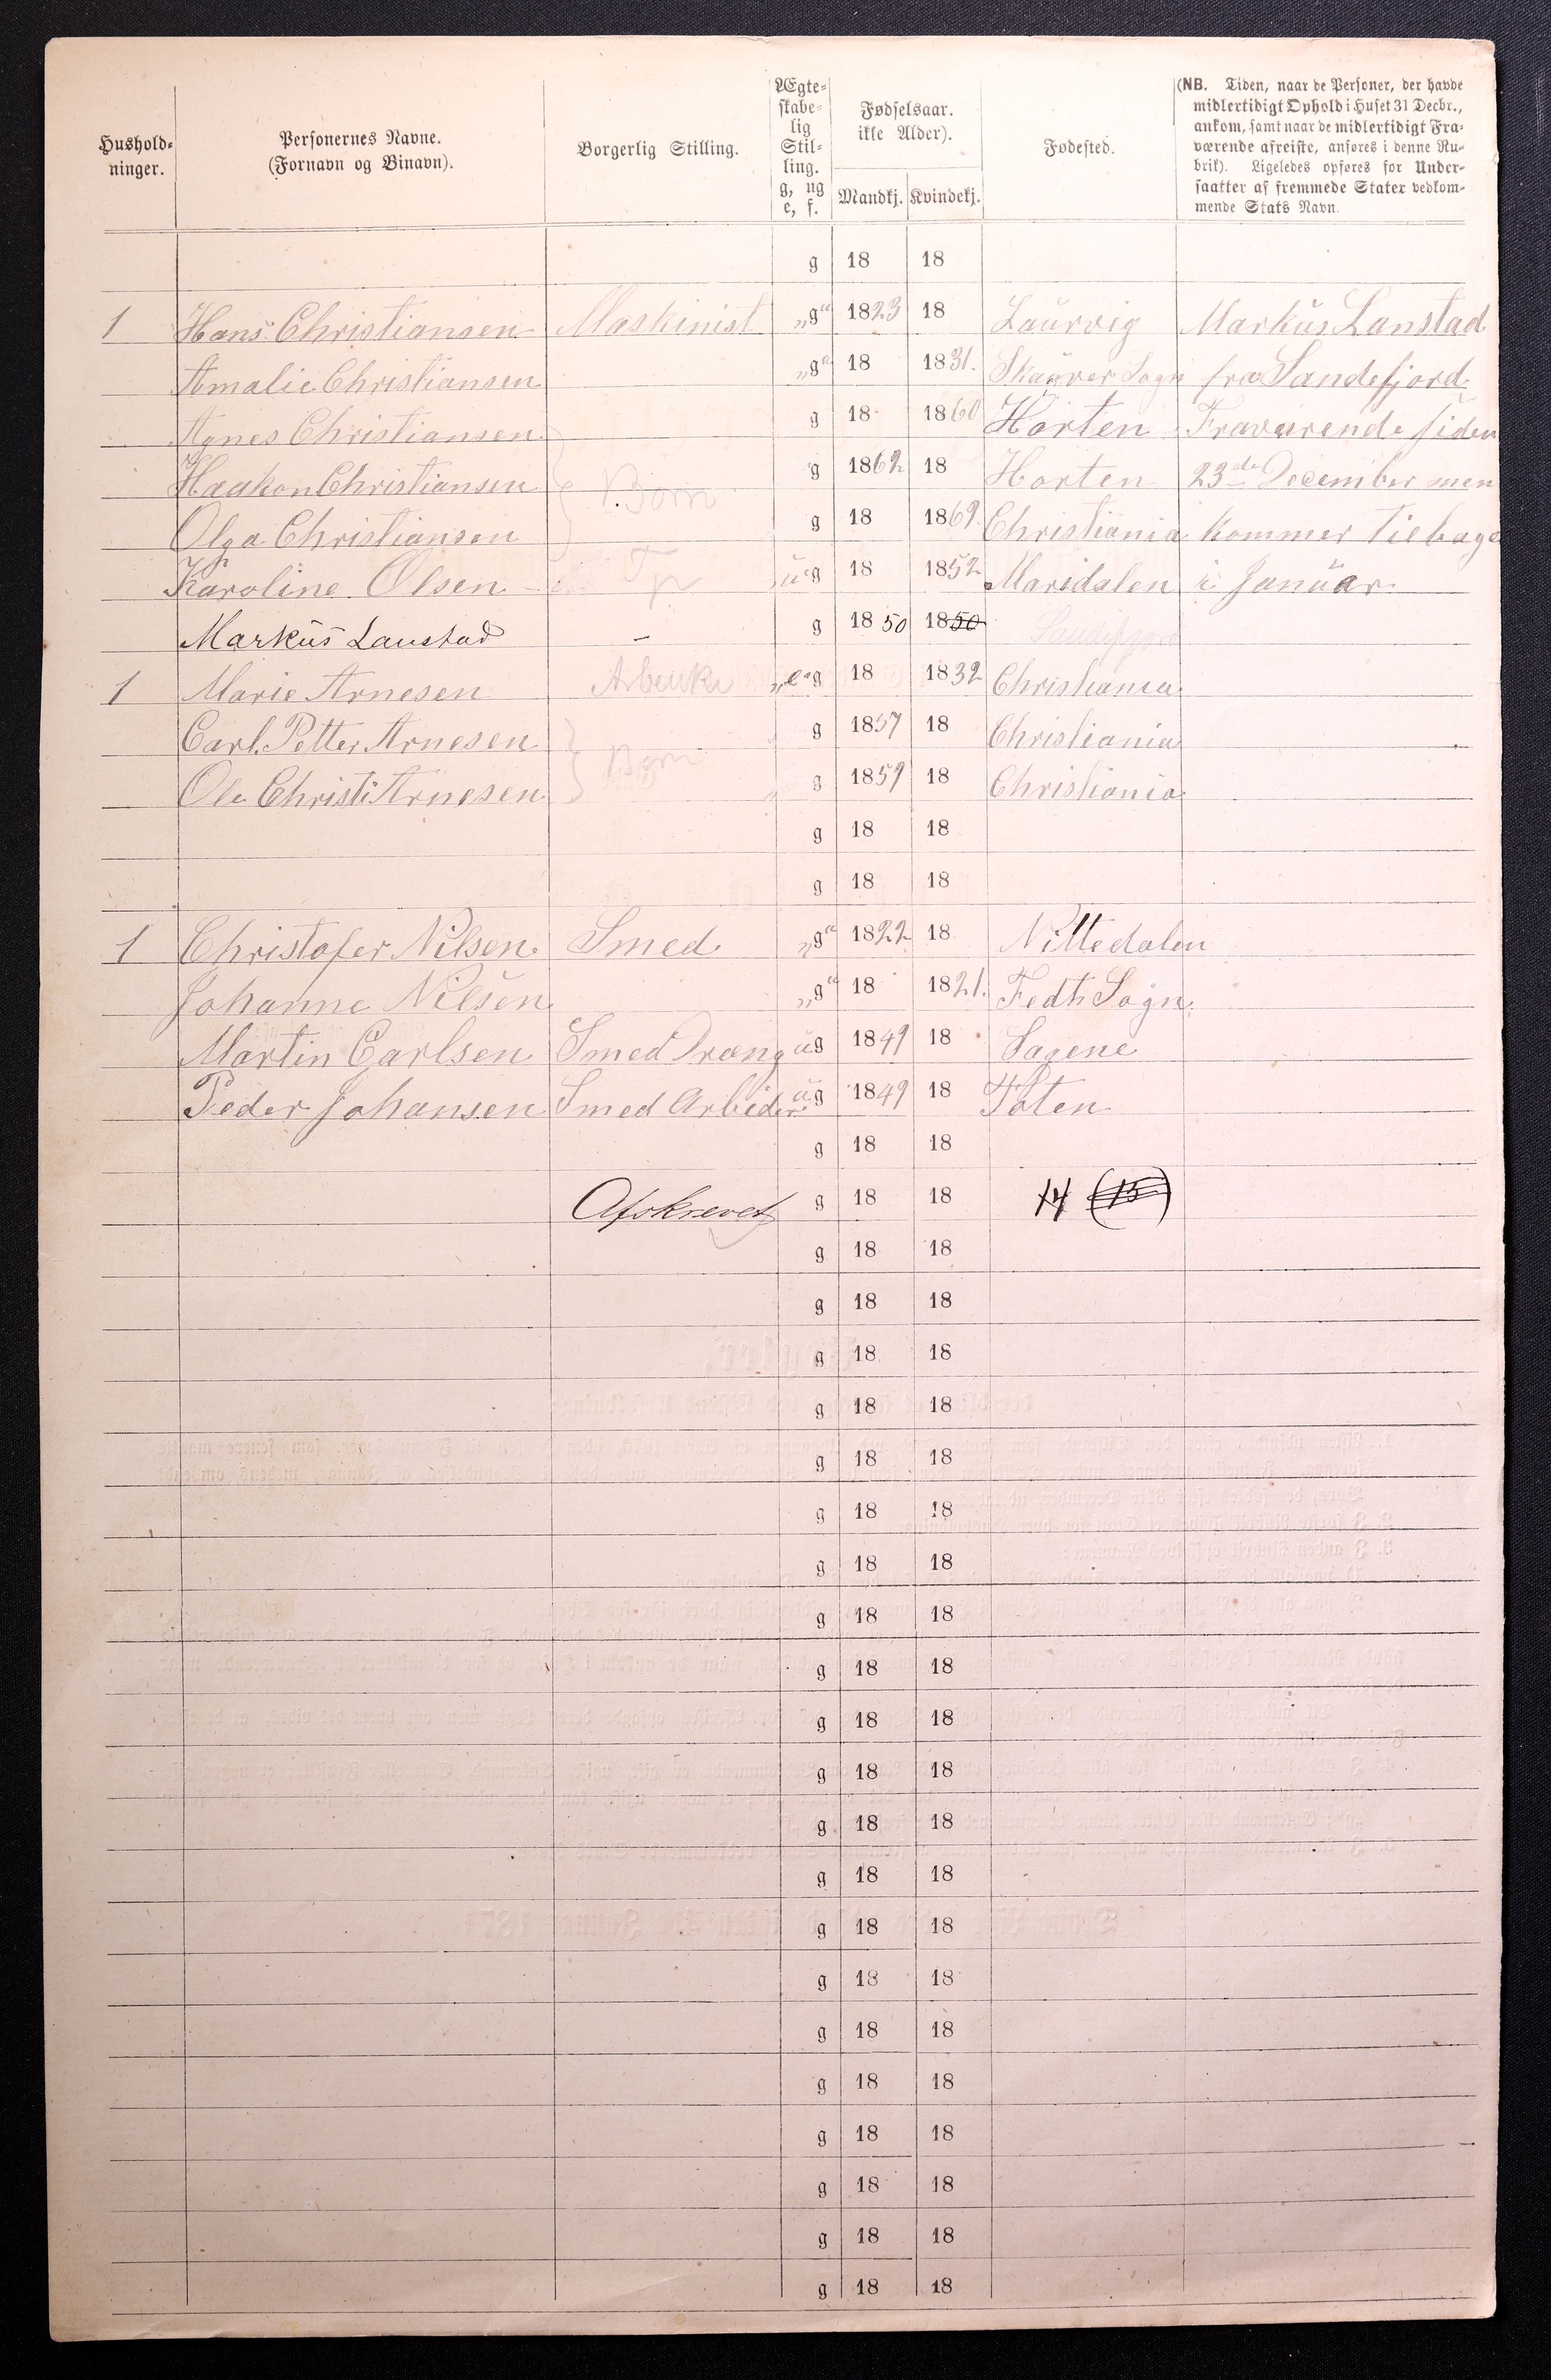 Hushold-
ninger.
Personernes Navne.
(Fornavn og Binavn).
Borgerlig Stilling.
Ægte-
skabe-
lig
Stil-
ling.
g, ug
e, f.
Fødselsaar.
ikke Alder).
Mandkj. Kvindekj.
Fødested.
(NB. Tiden, naar de Personer, der havde
midlertidigt Ophold i Huset 31 Decbr.,
ankom, samt naar de midlertidigt Fra-
værende afreiste, anføres i denne Ru-
brik). Ligeledes opføres for Under-
saatter af fremmede Stater vedkom-
mende Stats Navn.
g 18 18
1 Hans Christiansen Maskinist „g“ 1823 18 Laurvig Markus Lanstad
Amalie Christiansen „g“ 18 1831. Sogn fra Sandefjord
Agnes Christiansen g 18 1860 Horten Fraværende siden
Haakon Christiansen Børn g 1862 18 Horten 23de December men
Olga Christiansen g 18 1869 Christiania kommer tilbage
Karoline Olsen Tp ug 18 1852 Maridalen i Januar
Markus Lanstad – g 1850 1850 Sandefjord
1 Marie Arnesen „e“g 18 1832 Christiania
Carl. Petter Arnesen g 1857 18 Christiania
Ole Christi Arnesen Børn g 1859 18 Christiania
g 18 18
g 18 18
1 Christofer Nilsen Smed „g“ 1822 18 Nittedalen
Johanne Nilsen „g“ 18 1821. Fedts Sogn
Martin Carlsen Smed Dræng ug 1849 18 Sagene
Peder Johansen Smed Arbeider ug 1849 18 Toten
g 18 18
Afskrevet g 18 18 14 (15)
g 18 18
g 18 18
g 18 18
g 18 18
g 18 18
g 18 18
g 18 18
g 18 18
g 18 18
g 18 18
g 18 18
g 18 18
g 18 18
g 18 18
g 18 18
g 18 18
g 18 18
g 18 18
g 18 18
g 18 18
g 18 18